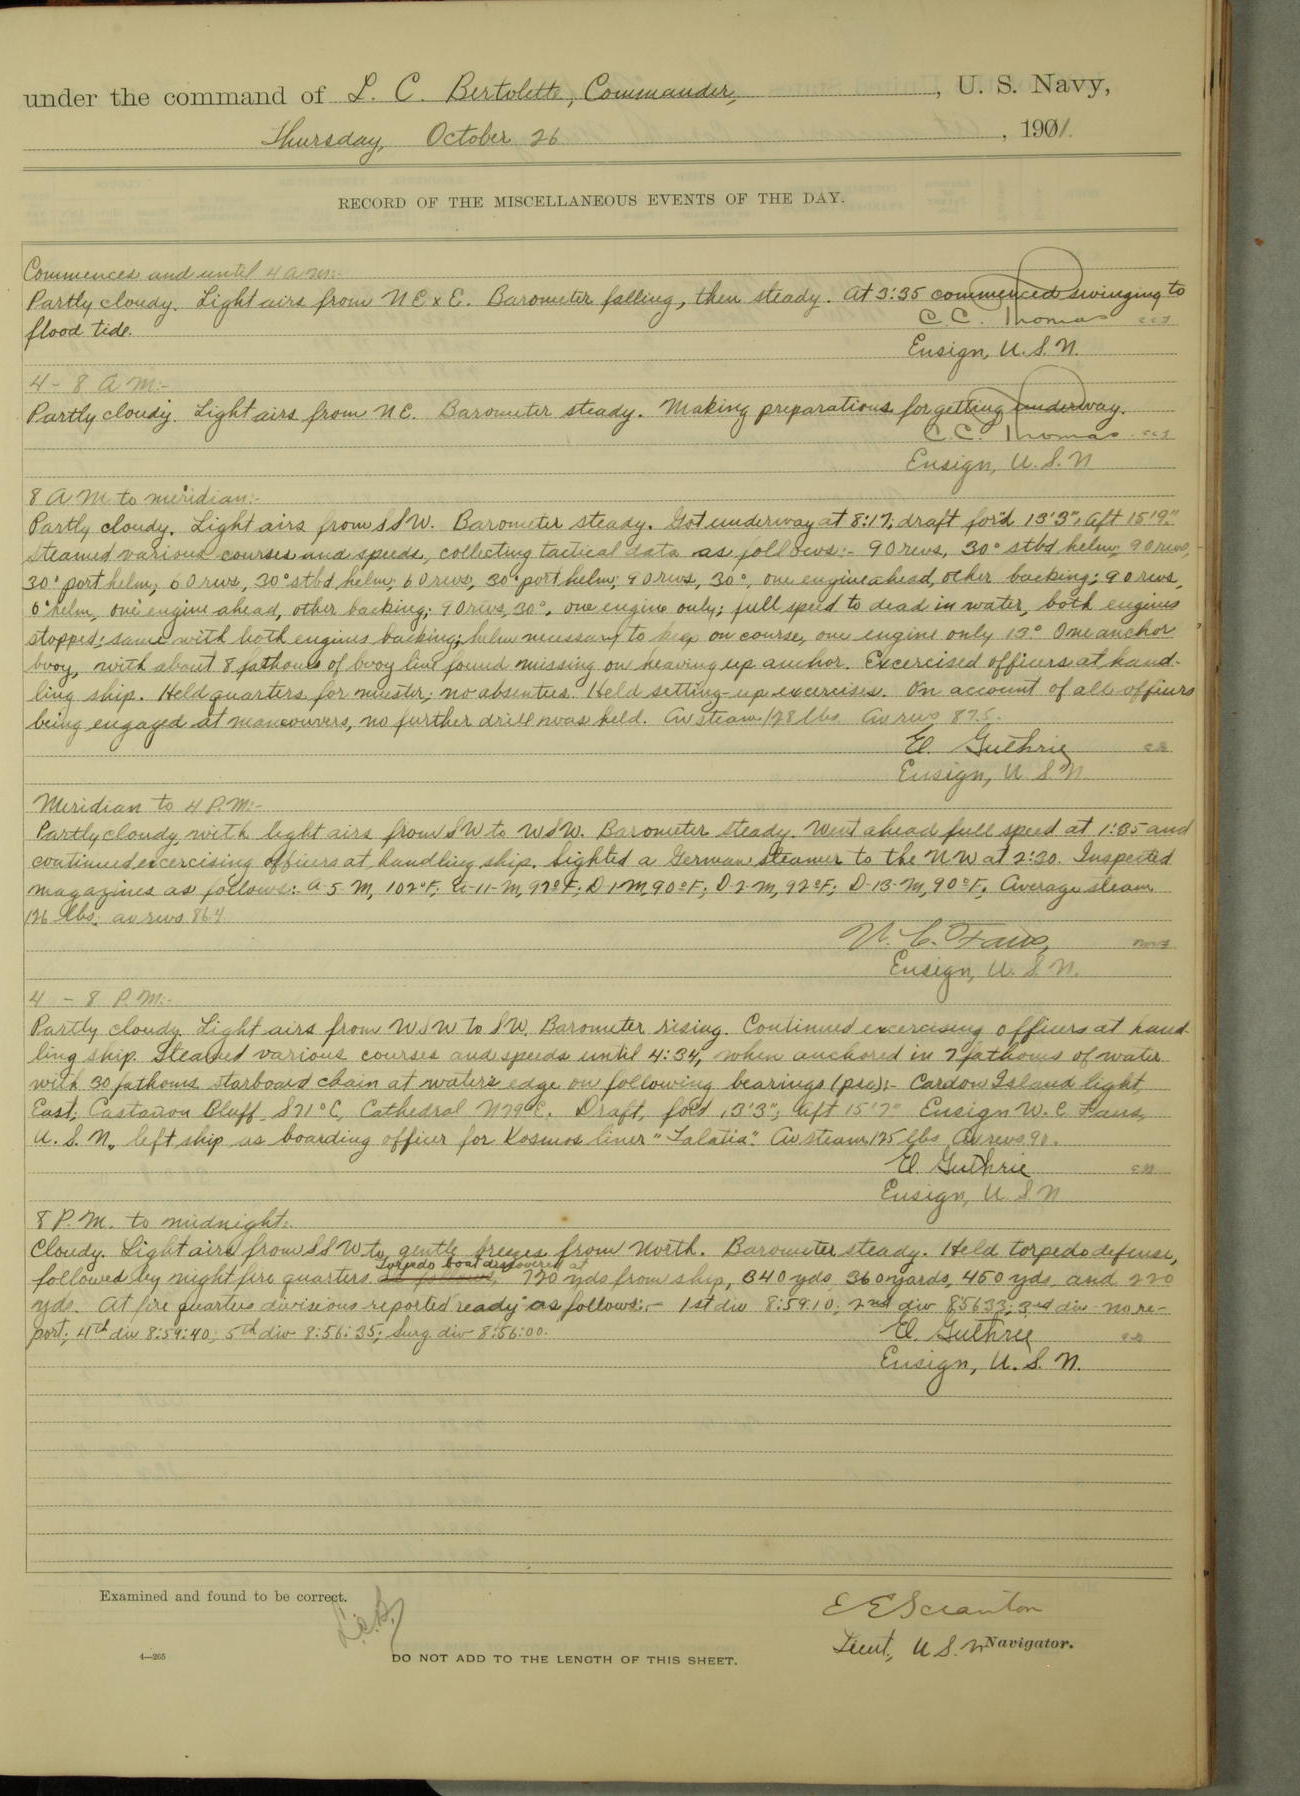 under the command of L. C. Bertolette, Commander, , U. S. Navy,
Thursday, October 26 , 1901.
RECORD OF THE MISCELLANEOUS EVENTS OF THE DAY.
Commences and until 4 a m:-
Partly cloudy. Light airs from N E x E. Barometer falling, then steady. At 3:35 commenced swinging to
flood tide.
C. C. Thomas
Ensign, U. S. N.
4 - 8 A M:-
Partly cloudy. Light airs from N E. Barometer steady. Making preparations for getting underway.
C. C. Thomas
Ensign, U. S. N
8 A M to meridian:-
Partly cloudy. Light airs from S S W. Barometer steady. Got underway at 8:17; draft for'd 13'3", aft 15'9".
Steamed various courses and speeds, collecting tactical data as follows:- 90 revs, 30° stbd helm; 90 revs,
30° port helm; 60 revs, 30° stbd helm; 60 revs, 30° port helm; 90 revs, 30°, one engine ahead, other backing; 90 revs,
0° helm, one engine ahead, other backing; 90 revs, 30°, one engine only; full speed to dead in water, both engines
stopped; same with both engines backing; helm necessary to keep on course, one engine only 13°. One anchor
buoy, with about 8 fathoms of buoy line found missing on heaving up anchor. Excercised officers at hand-
ling ship. Held quarters for muster; no absentees. Held setting-up excercises. On account of all officers
being engaged at maneouvers, no further drill was held. Av steam 128 lbs Av revs 87.5.
E. Guthrie
Ensign, U S N
Meridian to 4 P.M:-
Partly cloudy, with light airs from SW to WSW. Barometer steady. Went ahead full speed at 1:35 and
continued excercising officers at handling ship. Sighted a German steamer to the NW at 2:20. Inspected
magazines as follows:- A-5-M, 102°F; 97°F; D-1-M, 90°F; D-2-M, 92°F; D-13-M, 90°F. Average steam
126 lbs. av revs 86.4
W. C. Faus,
Ensign, U. S. N.
4 - 8 P.M:-
Partly cloudy. Light airs from WSW to SW. Barometer rising. Continued excercising officers at hand-
ling ship. Steamed various courses and speeds until 4:34, when anchored in 7 fathoms of water
with 30 fathoms starboard chain at water's edge on following bearings (psc):- Cardon Island light,
East; Bluff S 71° E, Cathedral N 79° E. Draft, for'd 13'3", aft 15'7" Ensign W. C. Faus,
U. S. N., left ship as boarding officer for Kosmos liner Av steam 125 lbs Av revs 90.
E. Guthrie
Ensign, U. S. N
8 P. M. to midnight:-
Cloudy. Light airs from SSW to gentle breezes from North. Barometer steady. Held torpedo defense,
followed by night fire quarters. Torpedo boat discovered at 720 yds from ship, 340 yds, 360 yards, 450 yds, and 220
yds. At fire quarters divisions reported "ready" as follows:- 1st div 8:59:10; 2nd div 8:56:33; 3rd div - no re-
port; 4th div 8:59:40; 5th div 8:56:35; Surg div 8:56:00.
E. Guthrie
Ensign, U. S. N.
Examined and found to be correct.
L.C.B.
E E Scranton
Lieut, U. S. N Navigator.
4—265
DO NOT ADD TO THE LENGTH OF THIS SHEET.